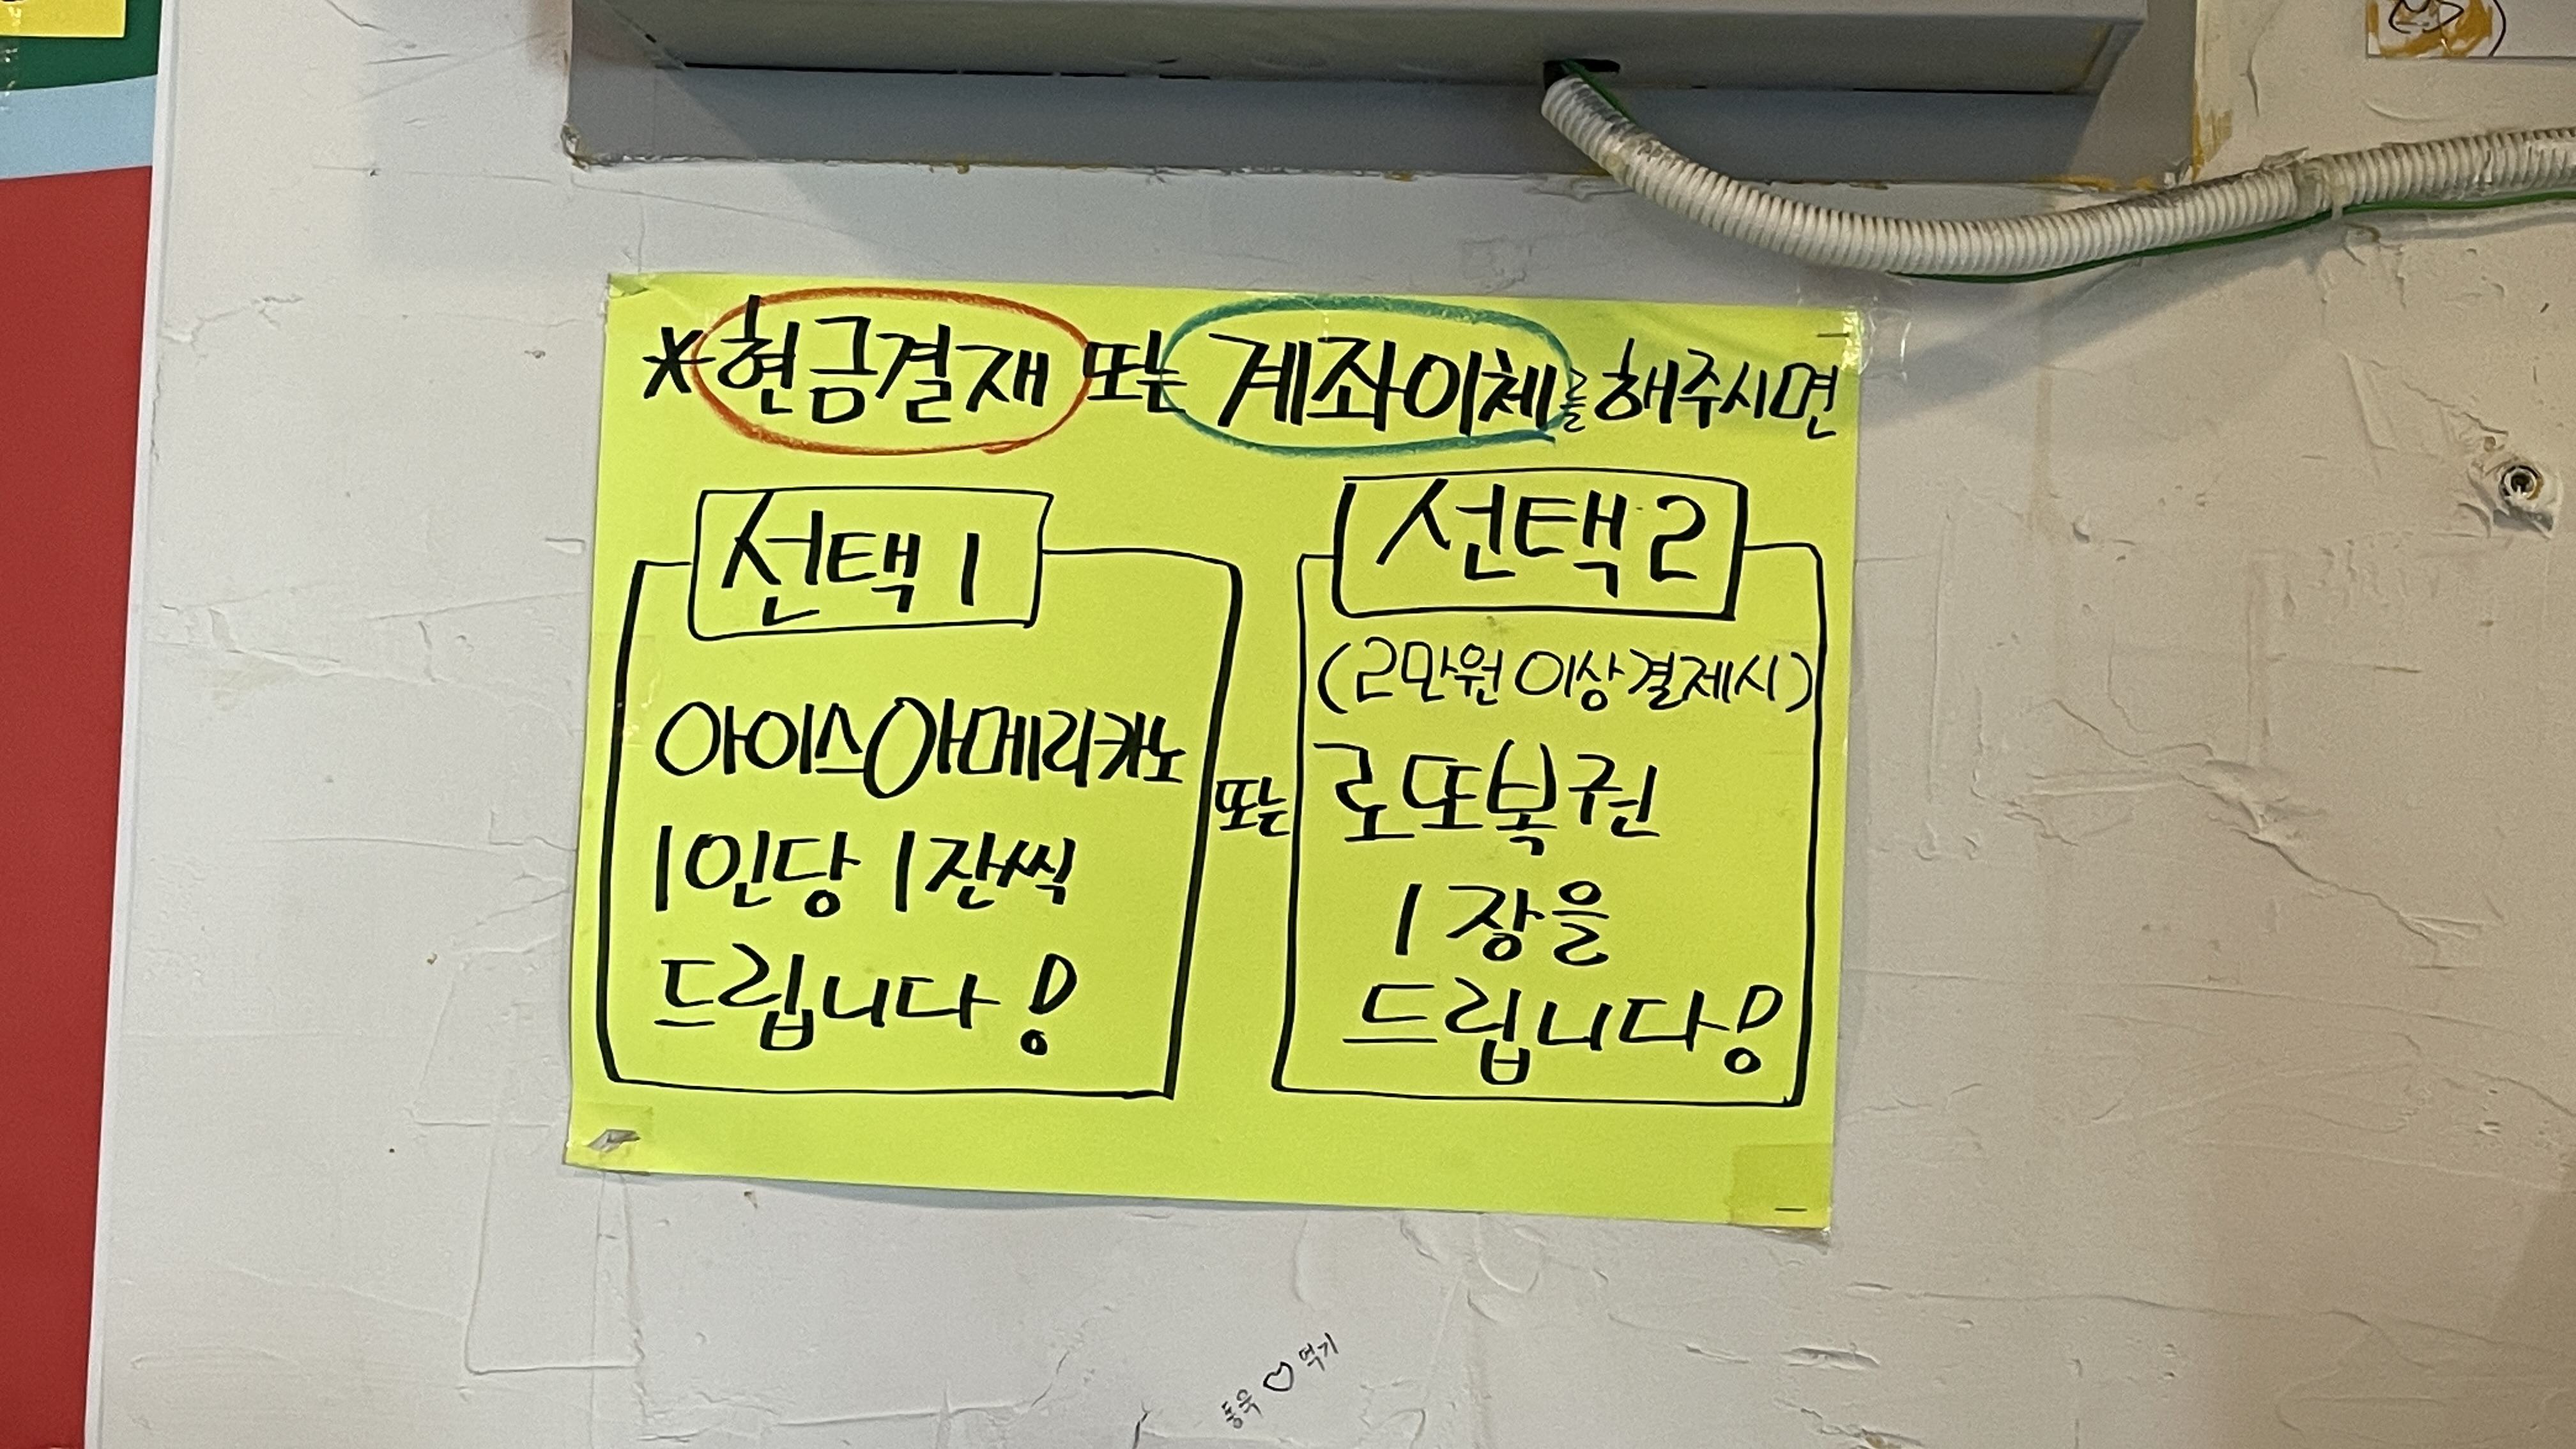 *현금결재 또는 계좌이체를 해주시면
선택1
아이스아메리카노
1인당 1잔씩
드립니다!
또는
선택2
(2만원 이상 결제시)
로또복권
1장을
드립니다!
동욱♡먹기